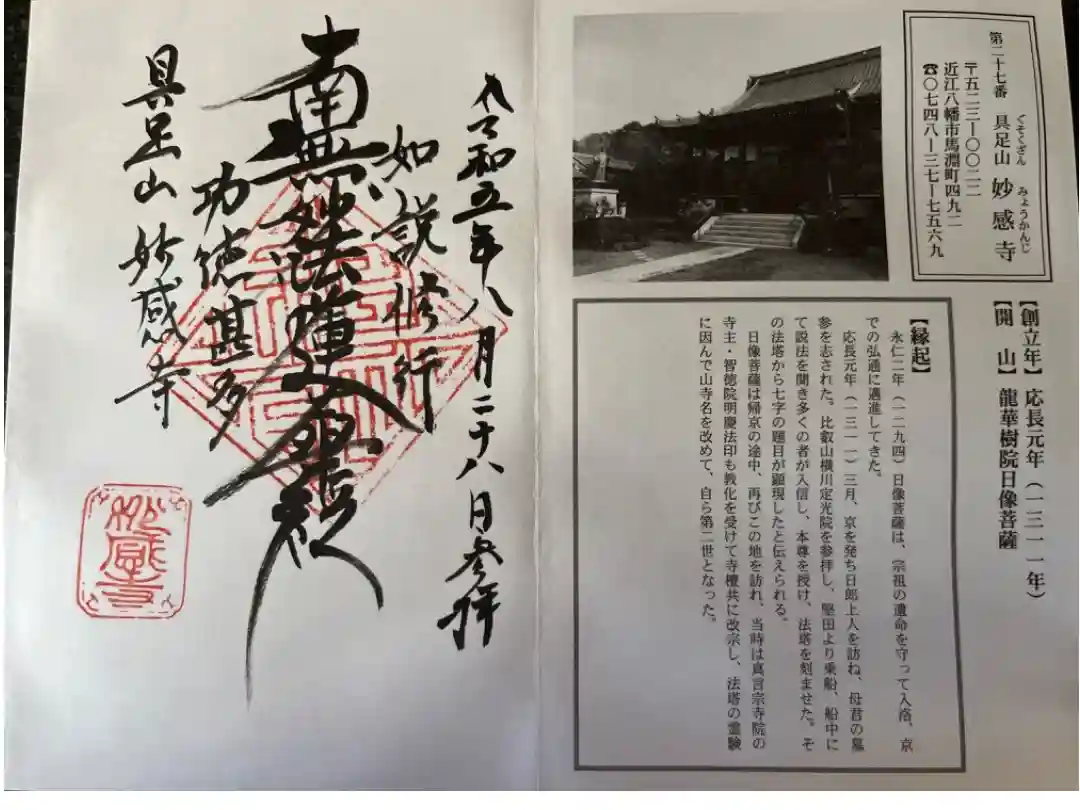 第二十七番 具足山 妙感寺
ぐそくざん みょうかんじ
〒五二三ー〇〇二二
近江八幡市馬淵町四九二
☎〇七四八ー三七ー七五六九
【創立年】応長元年(一三一一年)
【開 山】龍華樹院日像菩薩
【縁起】
永仁二年(一二九四)日像菩薩は、宗祖の遺命を守って入洛、京
での弘通に邁進してきた。
応長元年(一三一一)三月、京を発ち日郎上人を訪ね、母君の墓
参を志された。比叡山横川定光院を参拝し、堅田より乗船、船中に
て説法を聞き多くの者が入信し、本尊を授け、法塔を刻ませた。そ
の法塔から七字の題目が顕現したと伝えられる。
日像菩薩は帰京の途中、再びこの地を訪れ、当時は真言宗寺院の
寺主・智徳院明慶法印も教化を受けて寺檀共に改宗し、法塔の霊験
に因んで山寺名を改めて、自ら第二世となった。
令和五年八月二十八日参拝
如説修行
南無妙法蓮華経
功徳甚多
具足山 妙感寺
妙感寺